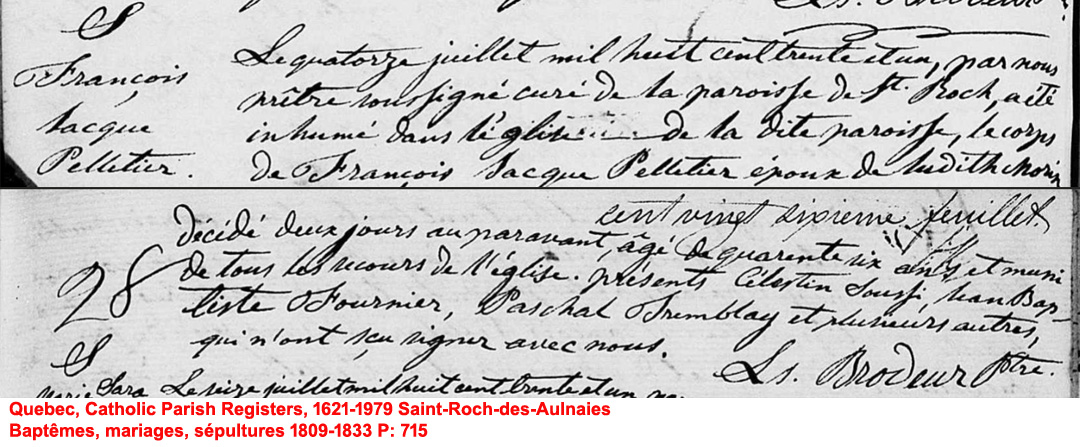 Ls. Brodeur
S
François
Jacque
Pelletier.
Le quatorze juillet mil huit cent trente et un, par nous
prêtre soussigné curé de la paroisse de St. Roch, a été
inhumé dans l'église de la dite paroisse, le corps
de François Jacque Pelletier époux de Judith Morin
cent vingt sixieme feuillet
28
décédé deux jours auparavant, âgé de quarente six ans et muni
de tous les secours de l'église. présents Célestin Soussi, Jean Bap-
tiste Fournier, Paschal Tremblay et plusieurs autres,
qui n'ont sçu signer avec nous.
Ls. Brodeur Ptre.
S
Sara Le seize juillet mil huit cent trente et un
Quebec, Catholic Parish Registers, 1621-1979 Saint-Roch-des-Aulnaies
Baptêmes, mariages, sépultures 1809-1833 P: 715